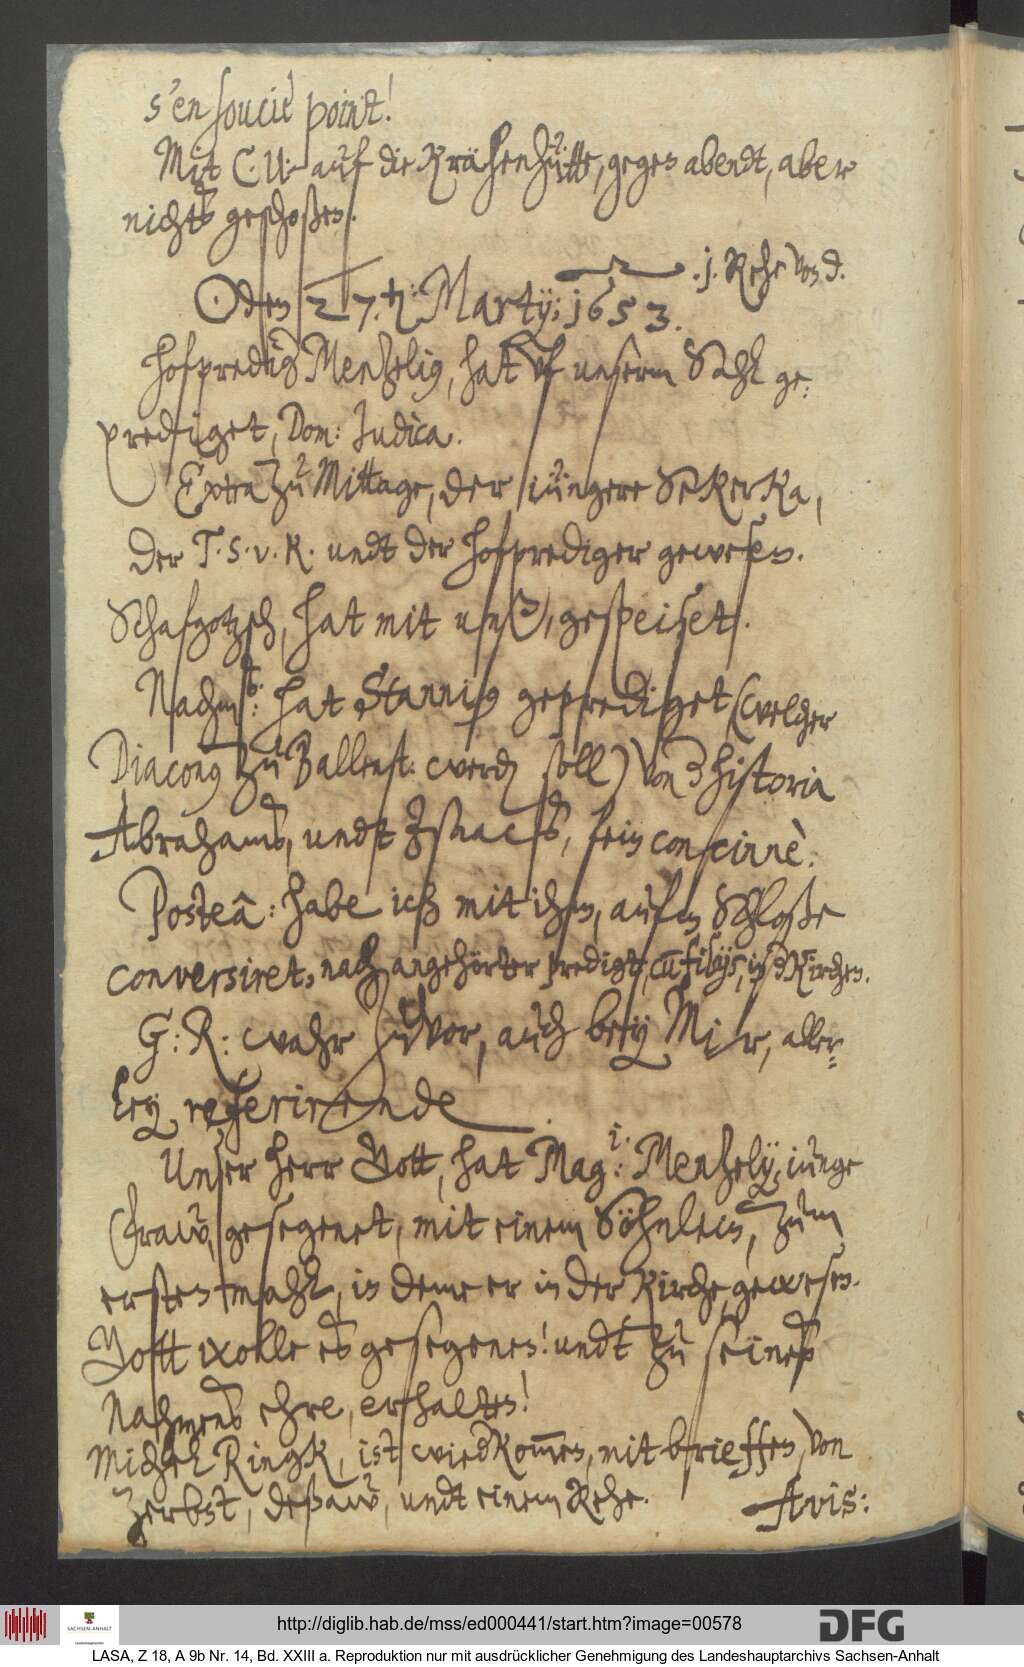 s'en soucie point!
Mit C. U. auf die Krähenhütte, gegen abendt, aber
nichts geschoßen.
. j. Rehe von d.
☉ den 27. ten: Martij; 1653.
Hofprediger Menzelius, hat vf unserm Sahl ge-
prediget, Dom: Judica.
Extra zu Mittage, der iüngere Sekerka,
der T. S. v. K. undt der hofprediger gewesen.
Schafgotzsch, hat mit unß, gespeiset.
Nachmittags: hat Stannius geprediget (welcher
Diaconus zu Ballenst: werden soll) von der historia
Abrahams, undt Isaacks, fein concinnè.
Posteâ: habe ich mit ihm, aufm Schloße
conversiret, nach angehörter predigt, cum filijs, in der Kirchen.
G: R: wahr zuvor, auch bey Mir, aller-
ley referirende
Unser herr Gott, hat Mag:i: Menzelij, iunge
Fraw, gesegenet, mit einem Söhnlein, zum
ersten mahl, in deme er in der Kirche, gewesen.
Gott wolle es gesegenen! undt zu seines
Nahmens ehre, erhalten!
Michel Ringk, ist wiederkommen, mit brieffen, von
Zerbst, Deßaw, undt einem Rehe.
Avis:
http://diglib.hab.de/mss/ed000441/start.htm?image=00578
SACHSEN-ANHALT
DFG
LASA, Z 18, A 9b Nr. 14, Bd. XXIII a. Reproduktion nur mit ausdrücklicher Genehmigung des Landeshauptarchivs Sachsen-Anhalt